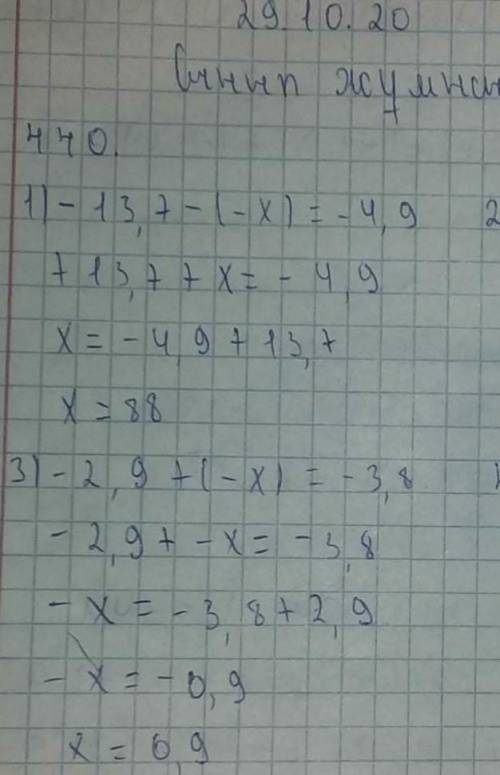 29.10.20
Сынып жұмысы
440.
1) - 13,7 - (-x) = -4,9
+ 13,7 + x = - 4,9
x = - 4,9 + 13,7
x = 88
3) - 2,9 + (-x) = -3,8
- 2,9 + - x = -3,8
- x = - 3,8 + 2,9
- x = - 0,9
x = 0,9